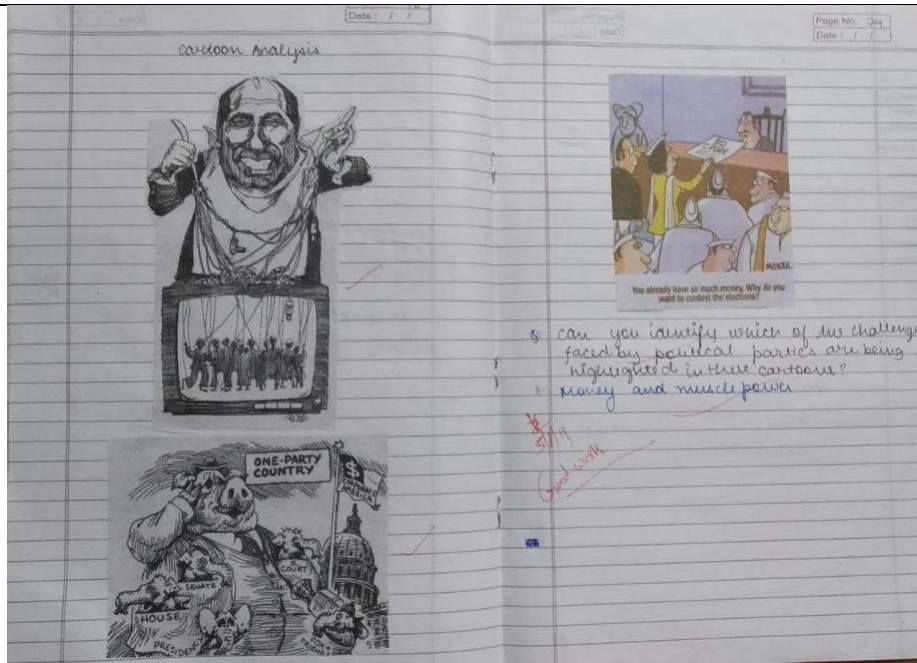 Date : / /
Cartoon Analysis
ONE-PARTY
COUNTRY
$
CORPORATE
AMERICA
COURT
SENATE
HOUSE
Page No.
Date : / /
You already have so much money. Why do you
want to contest the elections?
Q. Can you identify which of the challenge
faced by political parties are being
highlighted in these cartoons?
A. Money and muscle power
Good work